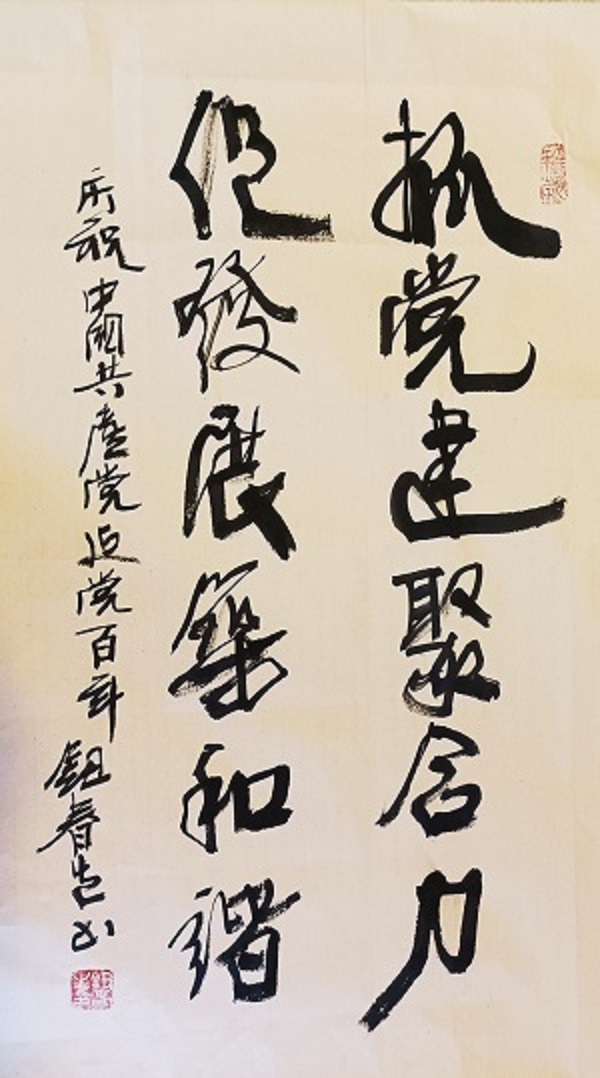 抓党建聚合力
促發展築和谐
庆祝中國共産党建党百年
鈕春生书